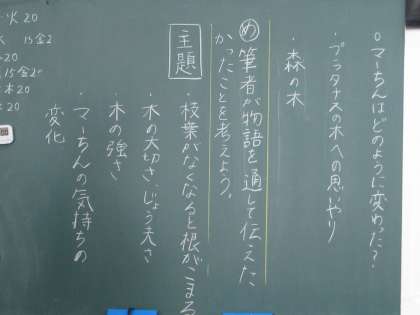 ○マーちんはどのように変わった?
・プラタナスの木への思いやり
・森の木
め 筆者が物語を通して伝えた
かったことを考えよう。
主題
・枝葉がなくなると根がこまる
・木の大切さ、じょう夫さ
・木の強さ
・マーちんの気持ちの
変化
火20
15金2
20
15金20
木20
20